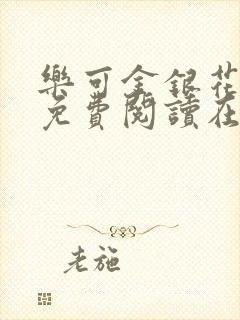 樂可金銀花
免費閱讀在
老施